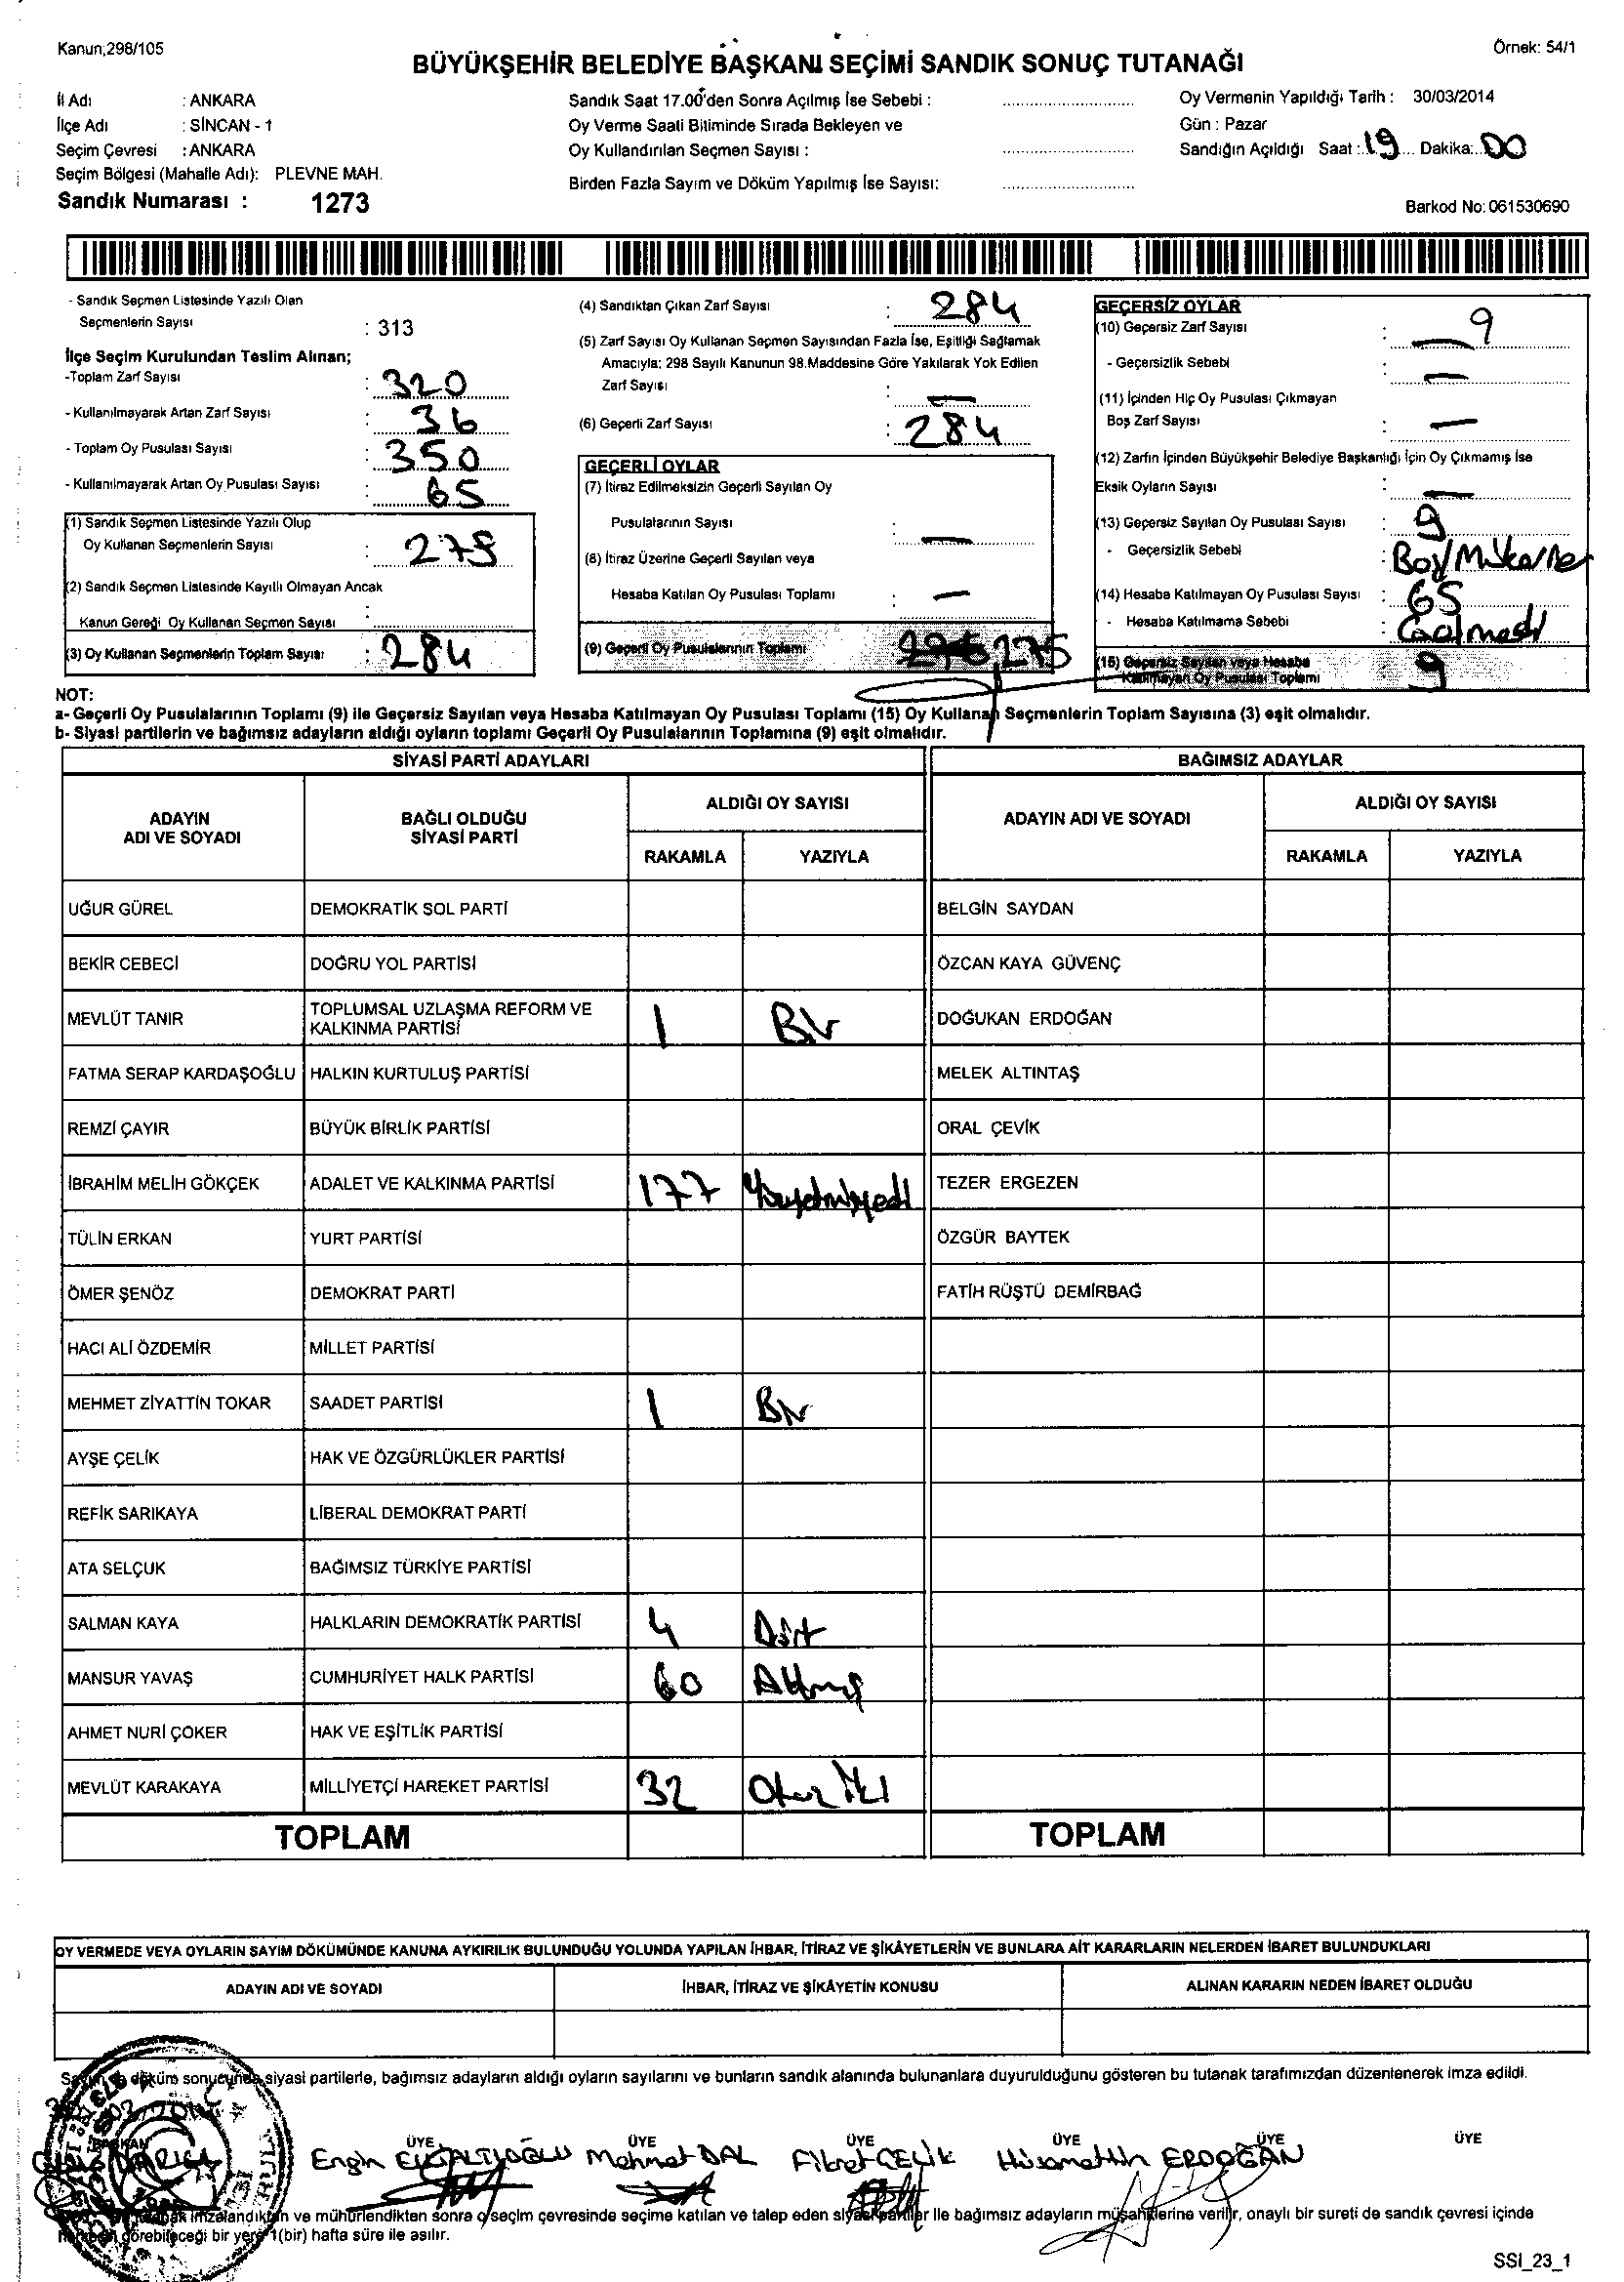 Kanun;298/105
Örnek: 54/1
BÜYÜKŞEHİR BELEDİYE BAŞKANI SEÇİMİ SANDIK SONUÇ TUTANAĞI
İl Adı : ANKARA
İlçe Adı : SİNCAN - 1
Seçim Çevresi : ANKARA
Seçim Bölgesi (Mahalle Adı): PLEVNE MAH.
Sandık Numarası : 1273
Sandık Saat 17.00'den Sonra Açılmış İse Sebebi :
Oy Verme Saati Bitiminde Sırada Bekleyen ve
Oy Kullandırılan Seçmen Sayısı :
Birden Fazla Sayım ve Döküm Yapılmış İse Sayısı:
Oy Vermenin Yapıldığı Tarih : 30/03/2014
Gün : Pazar
Sandığın Açıldığı Saat : 19 Dakika: 00
Barkod No: 061530690
- Sandık Seçmen Listesinde Yazılı Olan
Seçmenlerin Sayısı : 313
İlçe Seçim Kurulundan Teslim Alınan;
-Toplam Zarf Sayısı : 320
- Kullanılmayarak Artan Zarf Sayısı : 36
- Toplam Oy Pusulası Sayısı : 350
- Kullanılmayarak Artan Oy Pusulası Sayısı : 65
(1) Sandık Seçmen Listesinde Yazılı Olup
Oy Kullanan Seçmenlerin Sayısı :
(2) Sandık Seçmen Listesinde Kayıtlı Olmayan Ancak
Kanun Gereği Oy Kullanan Seçmen Sayısı :
(3) Oy Kullanan Seçmenlerin Toplam Sayısı : 284
(4) Sandıktan Çıkan Zarf Sayısı : 284
(5) Zarf Sayısı Oy Kullanan Seçmen Sayısından Fazla İse, Eşitliği Sağlamak
Amacıyla; 298 Sayılı Kanunun 98.Maddesine Göre Yakılarak Yok Edilen
Zarf Sayısı : —
(6) Geçerli Zarf Sayısı : 284
GEÇERLİ OYLAR
(7) İtiraz Edilmeksizin Geçerli Sayılan Oy
Pusulalarının Sayısı : —
(8) İtiraz Üzerine Geçerli Sayılan veya
Hesaba Katılan Oy Pusulası Toplamı : —
(9) Geçerli Oy Pusulalarının Toplamı 275
GEÇERSİZ OYLAR
(10) Geçersiz Zarf Sayısı : 9
- Geçersizlik Sebebi : —
(11) İçinden Hiç Oy Pusulası Çıkmayan
Boş Zarf Sayısı : —
(12) Zarfın İçinden Büyükşehir Belediye Başkanlığı İçin Oy Çıkmamış İse
Eksik Oyların Sayısı : —
(13) Geçersiz Sayılan Oy Pusulası Sayısı : 9
- Geçersizlik Sebebi :
(14) Hesaba Katılmayan Oy Pusulası Sayısı : 65
- Hesaba Katılmama Sebebi :
(15) Geçersiz Sayılan veya Hesaba
Katılmayan Oy Pusulası Toplamı 9
NOT:
a- Geçerli Oy Pusulalarının Toplamı (9) ile Geçersiz Sayılan veya Hesaba Katılmayan Oy Pusulası Toplamı (15) Oy Kullanan Seçmenlerin Toplam Sayısına (3) eşit olmalıdır.
b- Siyasi partilerin ve bağımsız adayların aldığı oyların toplamı Geçerli Oy Pusulalarının Toplamına (9) eşit olmalıdır.
SİYASİ PARTİ ADAYLARI BAĞIMSIZ ADAYLAR
ADAYIN ADI VE SOYADI BAĞLI OLDUĞU SİYASİ PARTİ ALDIĞI OY SAYISI ADAYIN ADI VE SOYADI ALDIĞI OY SAYISI
RAKAMLA YAZIYLA RAKAMLA YAZIYLA
UĞUR GÜREL DEMOKRATİK SOL PARTİ BELGİN SAYDAN
BEKİR CEBECİ DOĞRU YOL PARTİSİ ÖZCAN KAYA GÜVENÇ
MEVLÜT TANIR TOPLUMSAL UZLAŞMA REFORM VE KALKINMA PARTİSİ 1 Bir DOĞUKAN ERDOĞAN
FATMA SERAP KARDAŞOĞLU HALKIN KURTULUŞ PARTİSİ MELEK ALTINTAŞ
REMZİ ÇAYIR BÜYÜK BİRLİK PARTİSİ ORAL ÇEVİK
İBRAHİM MELİH GÖKÇEK ADALET VE KALKINMA PARTİSİ 177 Yüzyetmişyedi TEZER ERGEZEN
TÜLİN ERKAN YURT PARTİSİ ÖZGÜR BAYTEK
ÖMER ŞENÖZ DEMOKRAT PARTİ FATİH RÜŞTÜ DEMİRBAĞ
HACI ALİ ÖZDEMİR MİLLET PARTİSİ
MEHMET ZİYATTİN TOKAR SAADET PARTİSİ 1 Bir
AYŞE ÇELİK HAK VE ÖZGÜRLÜKLER PARTİSİ
REFİK SARIKAYA LİBERAL DEMOKRAT PARTİ
ATA SELÇUK BAĞIMSIZ TÜRKİYE PARTİSİ
SALMAN KAYA HALKLARIN DEMOKRATİK PARTİSİ 4 Dört
MANSUR YAVAŞ CUMHURİYET HALK PARTİSİ 60 Altmış
AHMET NURİ ÇOKER HAK VE EŞİTLİK PARTİSİ
MEVLÜT KARAKAYA MİLLİYETÇİ HAREKET PARTİSİ 32 Otuz İki
TOPLAM TOPLAM
OY VERMEDE VEYA OYLARIN SAYIM DÖKÜMÜNDE KANUNA AYKIRILIK BULUNDUĞU YOLUNDA YAPILAN İHBAR, İTİRAZ VE ŞİKÂYETLERİN VE BUNLARA AİT KARARLARIN NELERDEN İBARET BULUNDUKLARI
ADAYIN ADI VE SOYADI İHBAR, İTİRAZ VE ŞİKÂYETİN KONUSU ALINAN KARARIN NEDEN İBARET OLDUĞU
döküm sonucunda siyasi partilerle, bağımsız adayların aldığı oyların sayılarını ve bunların sandık alanında bulunanlara duyurulduğunu gösteren bu tutanak tarafımızdan düzenlenerek imza edildi.
BAŞKAN ÜYE ÜYE ÜYE ÜYE ÜYE ÜYE
Engin Mehmet DAL Fikret ÇELİK Hüsamettin ERDOĞAN
imzalandıktan ve mühürlendikten sonra o seçim çevresinde seçime katılan ve talep eden siyasi partiler ile bağımsız adayların müşahitlerine verilir, onaylı bir sureti de sandık çevresi içinde
görebileceği bir yere 1(bir) hafta süre ile asılır.
SSI_23_1